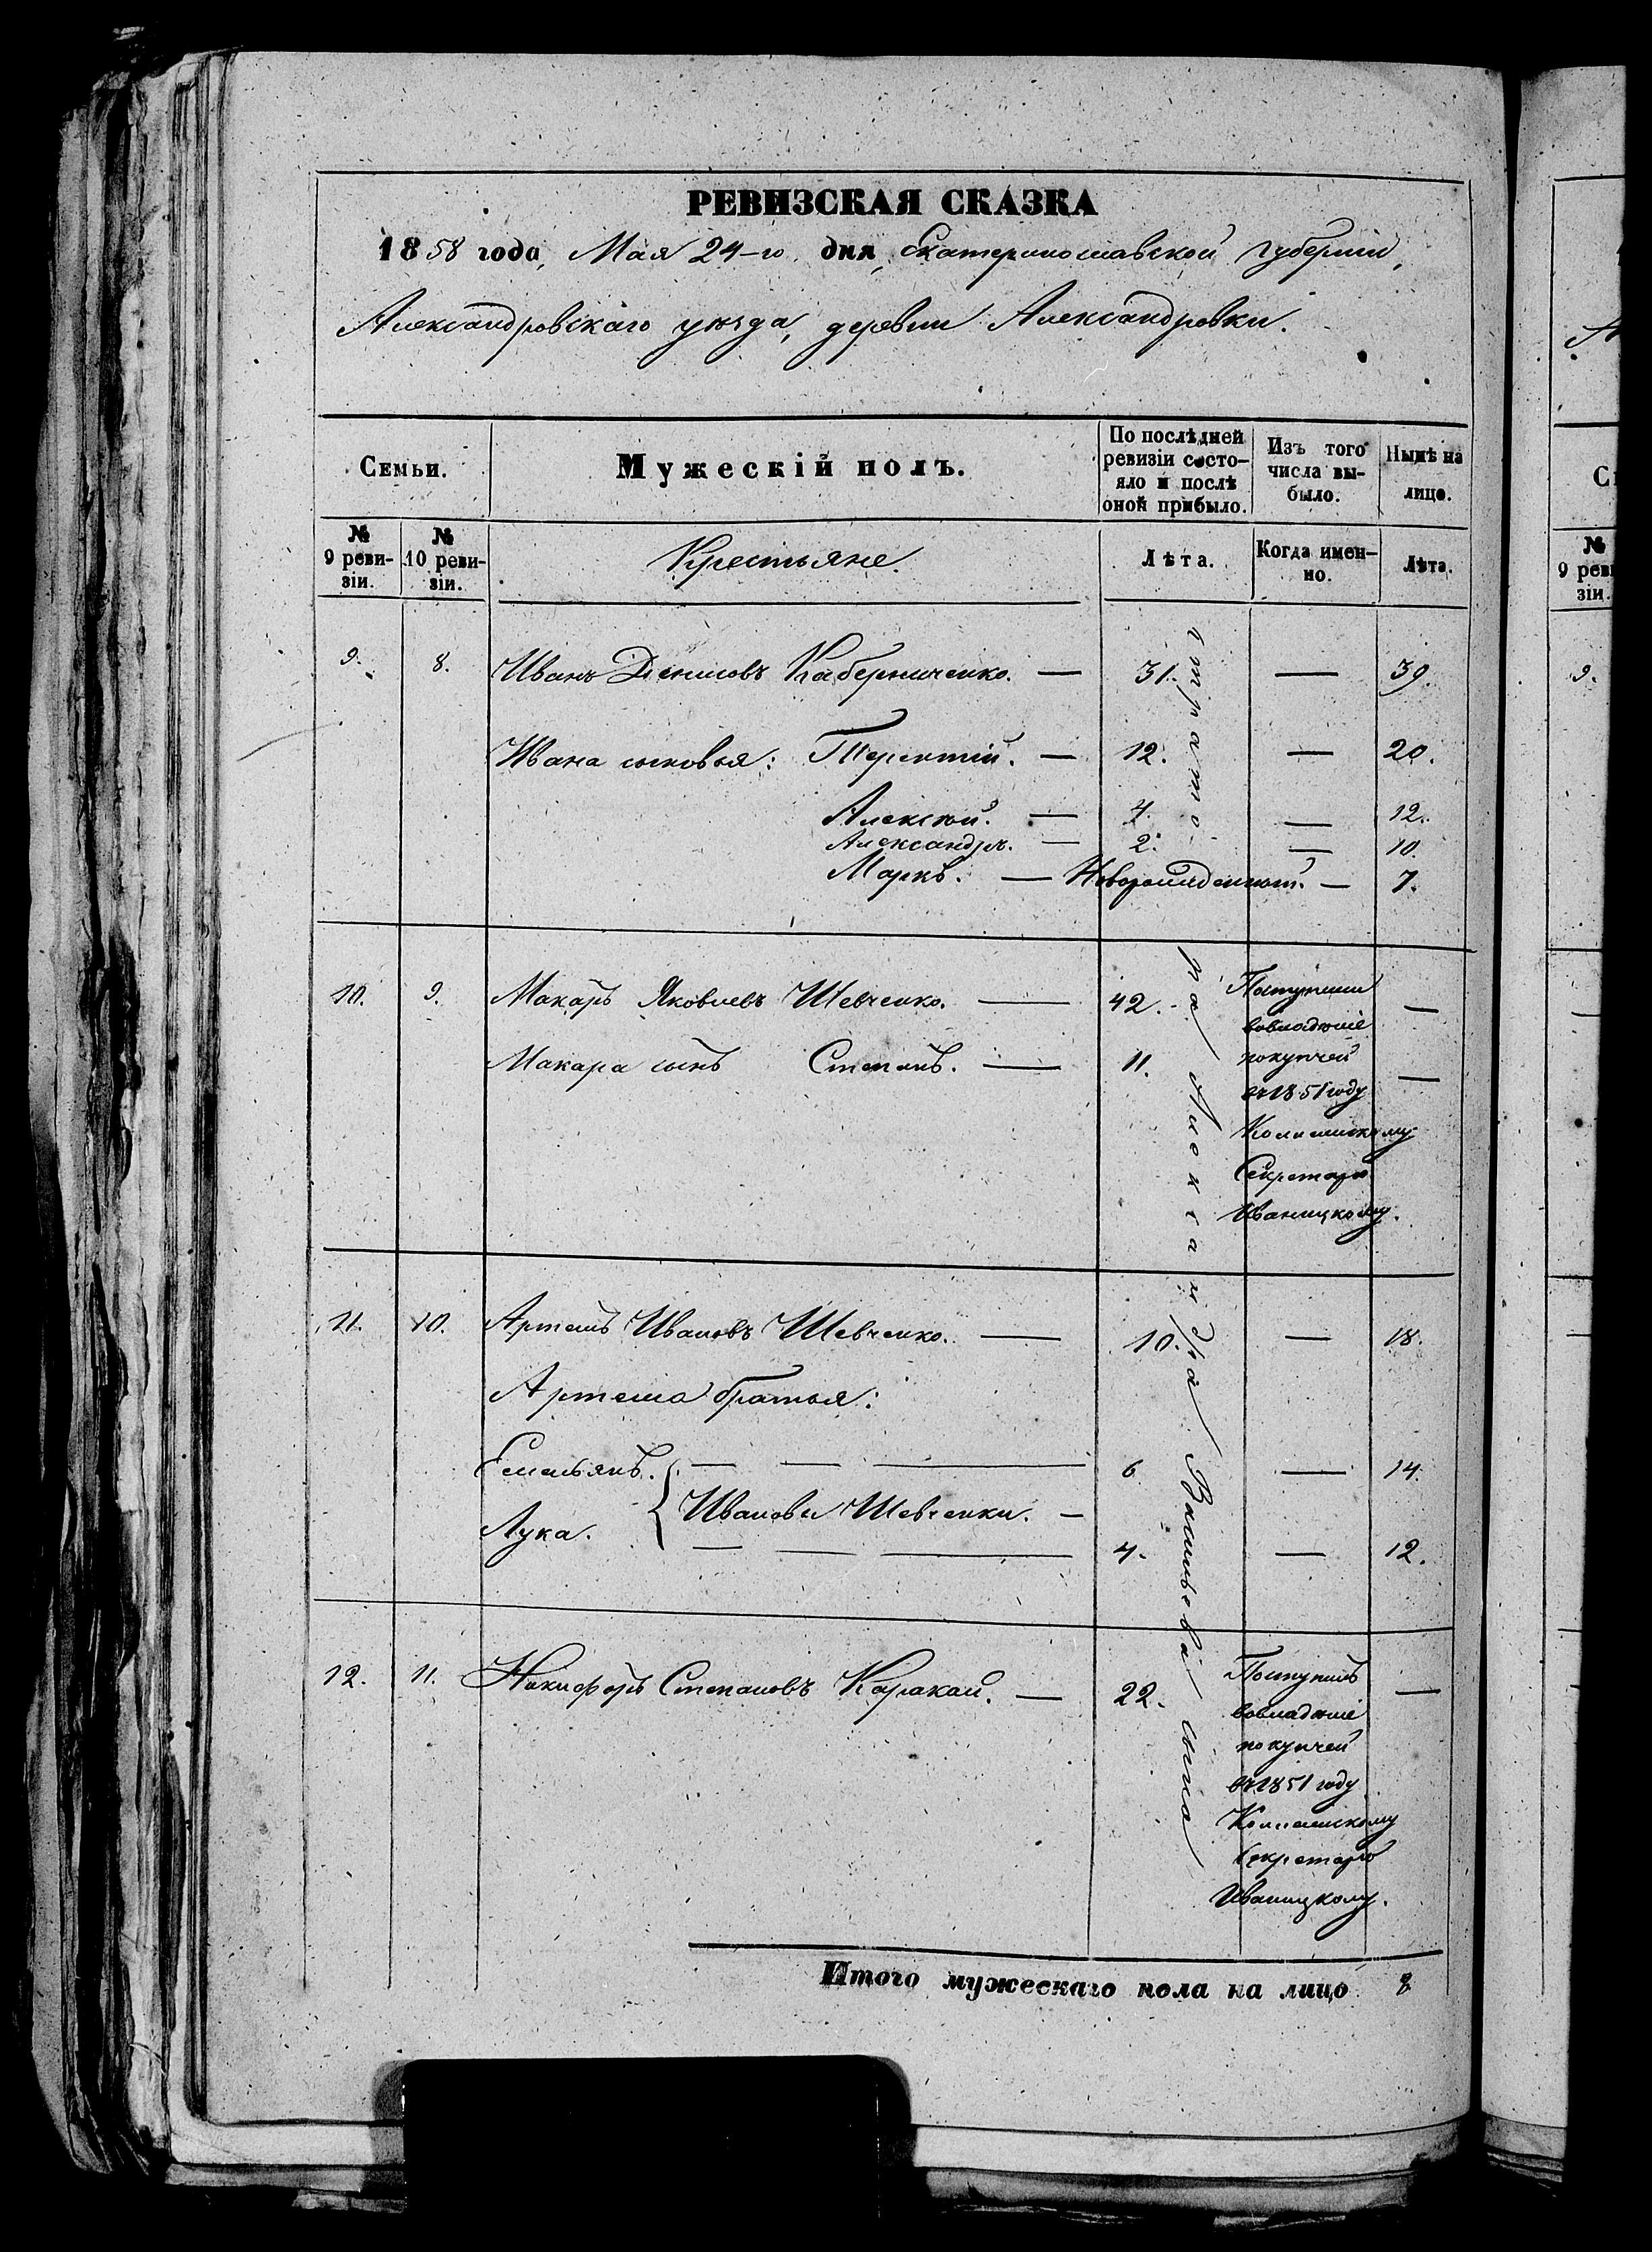 РЕВИЗСКАЯ СКАЗКА
1858 года, Мая 24-го дня, Екатеринославской Губерніи,
Александровскаго уѣзда, деревни Александровки.
Семьи.
Мужескій полъ.
По послѣдней ревизіи состо-
яло и послѣ
оной прибыло.
Изъ того
числа вы-
было.
Нынѣ на
лицо.
№
9 реви-
зіи.
№
10 реви-
зіи.
Крестьяне.
Лѣта.
Когда имен-
но.
Лѣта.
9. 8. Иванъ Денисовъ — 31. — 39.
Ивана сыновья: Терентій. — 12. — 20.
Алексѣй. — 4. — 12.
Александръ. — 2. — 10.
Маркъ. — Новорожденный. — 7.
10. 9. Макаръ Яковлевъ Шевченко. — 42. —
Макара сынъ Степанъ. — 11. —
Поступили
вовладѣніе
покупчей
въ 1851 году
Коллежскому
Секретарю
Иваницкому.
11. 10. Артемъ Ивановъ Шевченко. — 10. — 18.
Артема братья:
Емельянъ. — — — 6 — 14.
Ивановы Шевченки. —
Лука. — — — 4. — 12.
12. 11. Никифоръ Степановъ — 22. —
Поступилъ
вовладѣніе
покупчей
въ 1851 году
Коллежскому
Секретарю
Иваницкому.
Александра Васильева сына
Итого мужескаго пола на лицо 8
9.
№
9 реви
зіи.